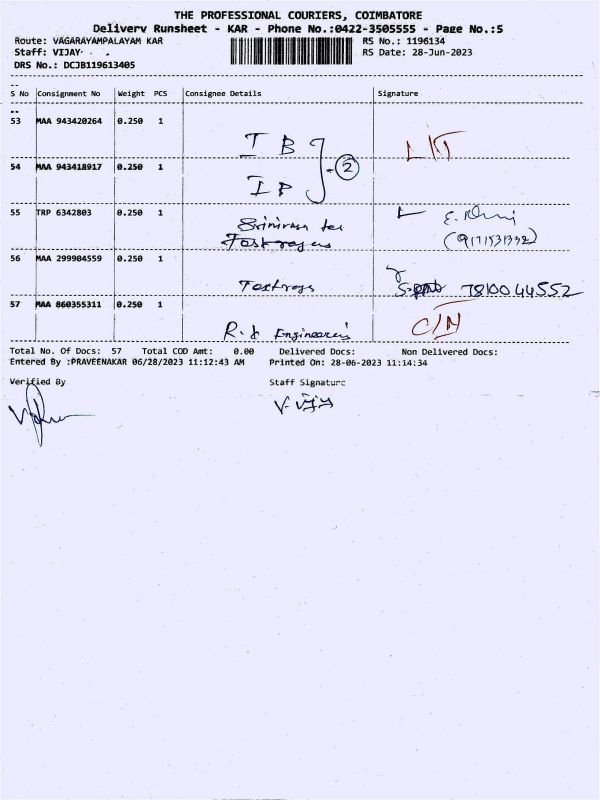 THE PROFESSIONAL COURIERS, COIMBATORE
Delivery Runsheet - KAR - Phone No.:0422-3505555 - Page No.:5
Route: VAGARAYAMPALAYAM KAR RS No.: 1196134
Staff: VIJAY RS Date: 28-Jun-2023
DRS No.: DCJB119613405
S No Consignment No Weight PCS Consignee Details Signature
53 MAA 943420264 0.250 1
I B
54 MAA 943418917 0.250 1
2
55 TRP 6342803 0.250 1
56 MAA 299904559 0.250 1
7810044552
57 MAA 860355311 0.250 1
Total No. Of Docs: 57 Total COD Amt: 0.00 Delivered Docs: Non Delivered Docs:
Entered By :PRAVEENAKAR 06/28/2023 11:12:43 AM Printed On: 28-06-2023 11:14:34
Verified By Staff Signature
V. Vijay